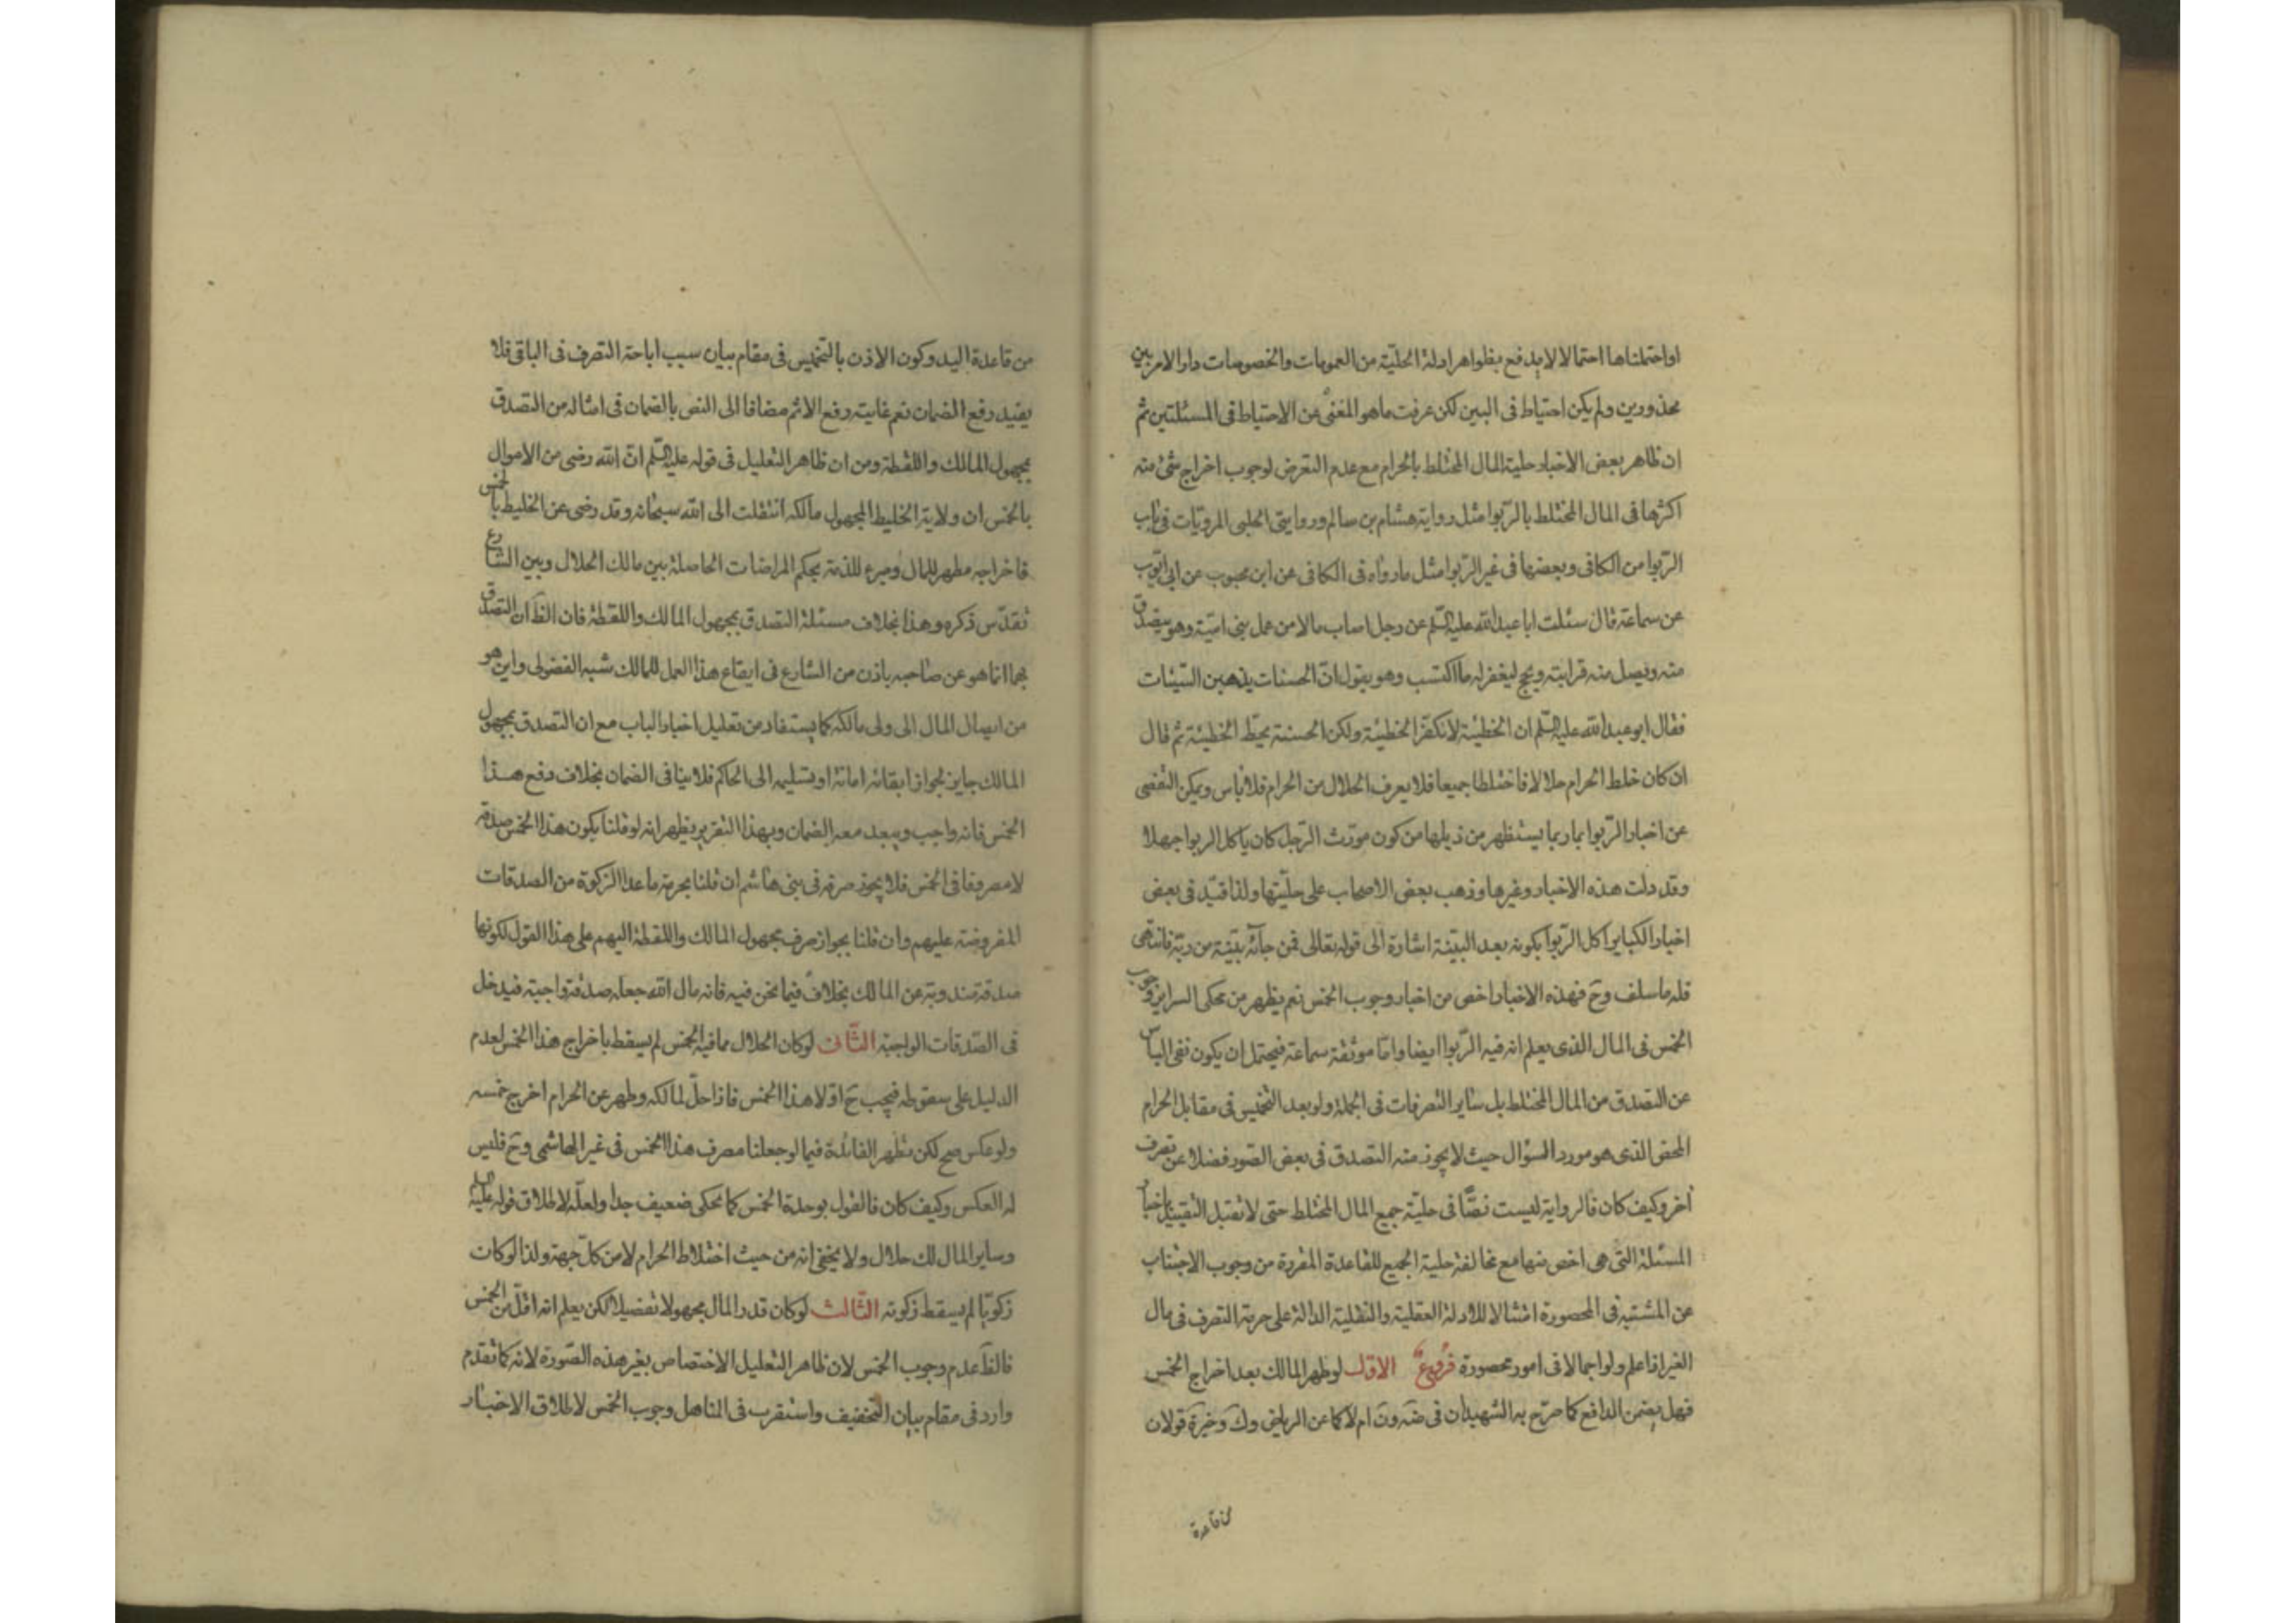 او احتملناها احتمالا لا يدفع بظواهر ادلة الحلّيّة من العمومات والخصوصات دار الامر بين
محذورين ولم يكن احتياط فى البين لكن عرفت ما هو المغنى عن الاحتياط فى المسئلتين ثم
ان ظاهر بعض الاخبار حلية المال المختلط بالحرام مع عدم التعرض لوجوب اخراج شئ منه
اكثرها فى المال المختلط بالرّبوا مثل رواية هشام بن سالم وروايتى الحلبى المرويّات فى باب
الرّبوا من الكافى وبعضها فى غير الرّبوا مثل ما رواه فى الكافى عن ابن محبوب عن ابى ايّوب
عن سماعة قال سئلت ابا عبد الله عليه السّلم عن رجل اصاب مالا من عمل بنى اميّة وهو يتصدّق
منه ويصل منه قرابته ويحج ليغفر له ما اكتسب وهو يقول انّ الحسنات يذهبن السّيئات
فقال ابو عبد الله عليه السّلم ان الخطيئة لا تكفّر الخطيئة ولكن الحسنة تحطّ الخطيئة ثم قال
ان كان خلط الحرام حلالا فاختلطا جميعا فلا يعرف الحلال من الحرام فلا باس ويمكن التفصى
عن اخبار الرّبوا بما ربما يستظهر من ذيلها من كون مورّث الرّجل كان ياكل الربوا جهلا
وقد دلت هذه الاخبار وغيرها وذهب بعض الاصحاب على حلّيّتها ولذا قيّد فى بعض
اخبار الكباير اكل الرّبوا بكونه بعد البيّنة اشارة الى قوله تعالى فمن جائه بيّنة من ربّه فانتهى
فله ما سلف وح فهذه الاخبار اخص من اخبار وجوب الخمس نعم يظهر من محكى السراير وجوب
الخمس فى المال الذى يعلم انه فيه الرّبوا ايضا وامّا موثقة سماعة فيحتمل ان يكون نفى الباس
عن التصدق من المال المختلط بل ساير التصرفات فى الجملة ولو بعد التخميس فى مقابل الحرام
المحض الذى هو مورد السؤال حيث لا يجوز منه التصدق فى بعض الصّور فضلا عن تصرف
اخر وكيف كان فالرواية ليست نصّا فى حليّة جميع المال المختلط حتى لا تقبل التقييد باخبار
المسئلة التى هى اخص منها مع مخالفة حلية الجميع للقاعدة المقررة من وجوب الاجتناب
عن المشتبه فى المحصورة امتثالا للادلة العقلية والنقلية الدالة على حرمة التصرف فى مال
الغير اذا علم ولو اجمالا فى امور محصورة فروع الاوّل لو ظهر المالك بعد اخراج الخمس
فهل يضمن الدافع كما صرّح به الشهيدان فى ضه ون ام لا كما عن الرياض وك وخيرة قولان
من قاعدة
من قاعدة اليد وكون الاذن بالتخميس فى مقام بيان سبب اباحة التصرف فى الباقى فلا
يفيد رفع الضمان نعم غايته رفع الاثم مضافا الى النص بالضمان فى امثاله من التصدق
بمجهول المالك واللقطة ومن ان ظاهر التعليل فى قوله عليه السّلم انّ الله رضى من الاموال
بالخمس ان ولاية الخليط المجهول مالكه انتقلت الى الله سبحانه وقد رضى عن الخليط بالخمس
فاخراجه مطهر للمال ومبرء للذمة بحكم المراضات الحاصلة بين مالك الحلال وبين الشارع
تقدّس ذكره وهذا بخلاف مسئلة التصدق بمجهول المالك واللقطة فان الظ ان التصدّق
بهما انما هو عن صاحبه باذن من الشارع فى ايقاع هذا العمل للمالك شبه الفضولى واين هو
من ايصال المال الى ولى مالكه كما يستفاد من تعليل اخبار الباب مع ان التصدق بمجهول
المالك جايز لجواز ابقائه امانة او تسليمه الى الحاكم فلا ينافى الضمان بخلاف دفع هذا
الخمس فانه واجب ويبعد معه الضمان وبهذا التقرير يظهر انه لو قلنا بكون هذا الخمس صدقة
لا مصروفا فى الخمس فلا يجوز صرفه فى بنى هاشم ان قلنا بحرمة ما عدا الزكوة من الصدقات
المفروضة عليهم وان قلنا بجواز صرف مجهول المالك واللقطة اليهم على هذا القول لكونها
صدقة مندوبة عن المالك بخلاف فيما نحن فيه فانه مال الله جعله صدقة واجبة فيدخل
فى الصّدقات الواجبة الثّانى لو كان الحلال مما فيه الخمس لم يسقط باخراج هذا الخمس لعدم
الدليل على سقوطه فيجب ح اوّلا هذا الخمس فاذا حلّ لمالكه وطهر عن الحرام اخرج خمسه
ولو عكس صح لكن تظهر الفائدة فيما لو جعلنا مصرف هذا الخمس فى غير الهاشمى وح فليس
له العكس وكيف كان فالقول بوحدة الخمس كما يحكى ضعيف جدا ولعلّه لاطلاق قوله عليه السلم
وساير المال لك حلال ولا يخفى انه من حيث اختلاط الحرام لا من كلّ جهة ولذا لو كان
زكويّا لم يسقط زكوته الثّالث لو كان قدر المال مجهولا تفصيلا لكن يعلم انه اقلّ من الخمس
فالظ عدم وجوب الخمس لان ظاهر التعليل الاختصاص بغير هذه الصّورة لانه كما تقدم
وارد فى مقام بيان التخفيف واستقرب فى المناهل وجوب الخمس لاطلاق الاخبار